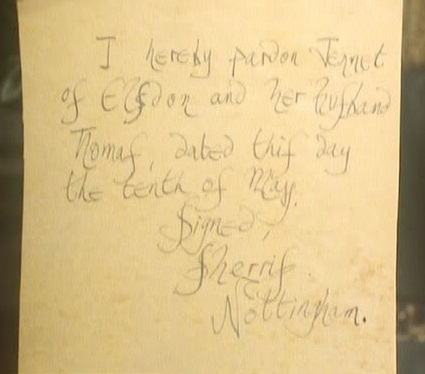 I hereby pardon Jennet
of Elsdon and her husband
Thomas, dated this day
the tenth of May.
Signed,
Sherrif
Nottingham.